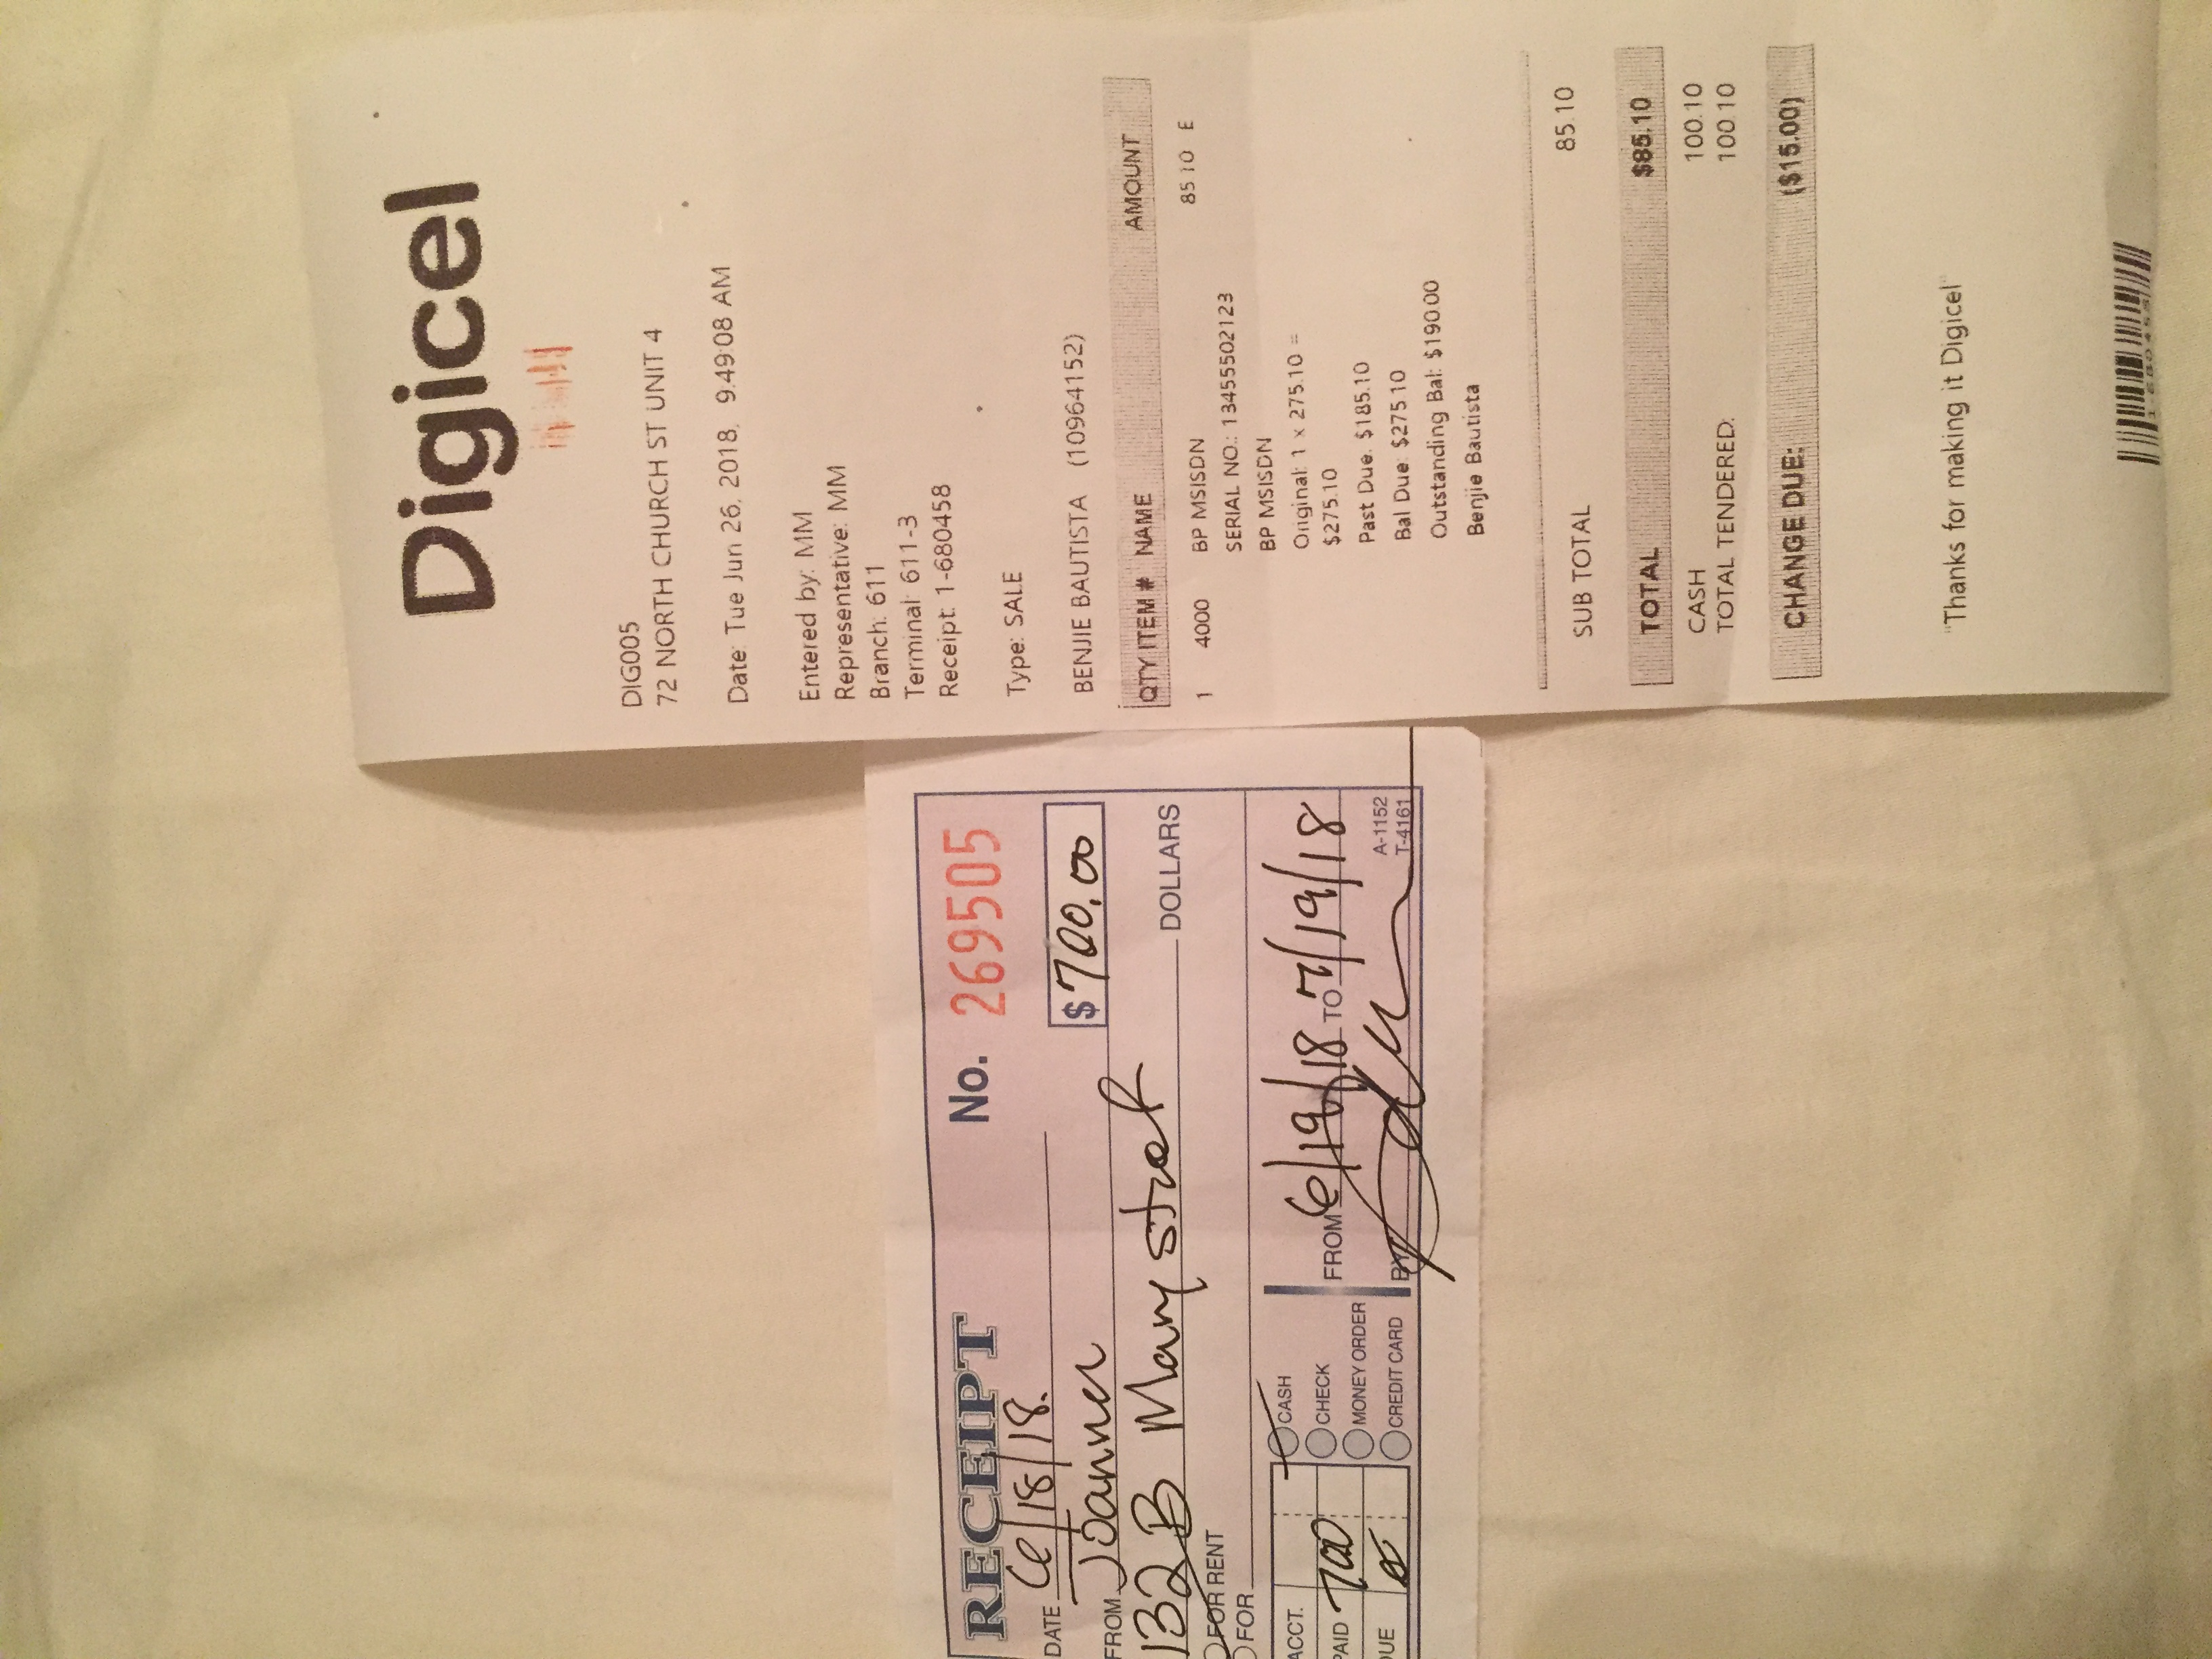 RECEIPT No. 269505
DATE 6/18/18.
$700.00
FROM Joanna
132 B Mary street DOLLARS
FOR RENT
FOR
ACCT.
CASH
PAID 700
CHECK
MONEY ORDER
DUE
CREDIT CARD
FROM 6/19/18 TO 7/19/18
BY
A-1152
T-4161
Digicel
DIG005
72 NORTH CHURCH ST UNIT 4
Date: Tue Jun 26, 2018, 9:49:08 AM
Entered by: MM
Representative: MM
Branch: 611
Terminal: 611-3
Receipt: 1-680458
Type: SALE
BENJIE BAUTISTA (10964152)
QTY ITEM # NAME AMOUNT
1 4000 BP MSISDN 85.10 E
SERIAL NO.: 13455502123
BP MSISDN
Original: 1 x 275.10 =
$275.10
Past Due: $185.10
Bal Due: $275.10
Outstanding Bal: $190.00
Benjie Bautista
SUB TOTAL 85.10
TOTAL $85.10
CASH 100.10
TOTAL TENDERED: 100.10
CHANGE DUE: ($15.00)
"Thanks for making it Digicel"
1-680458